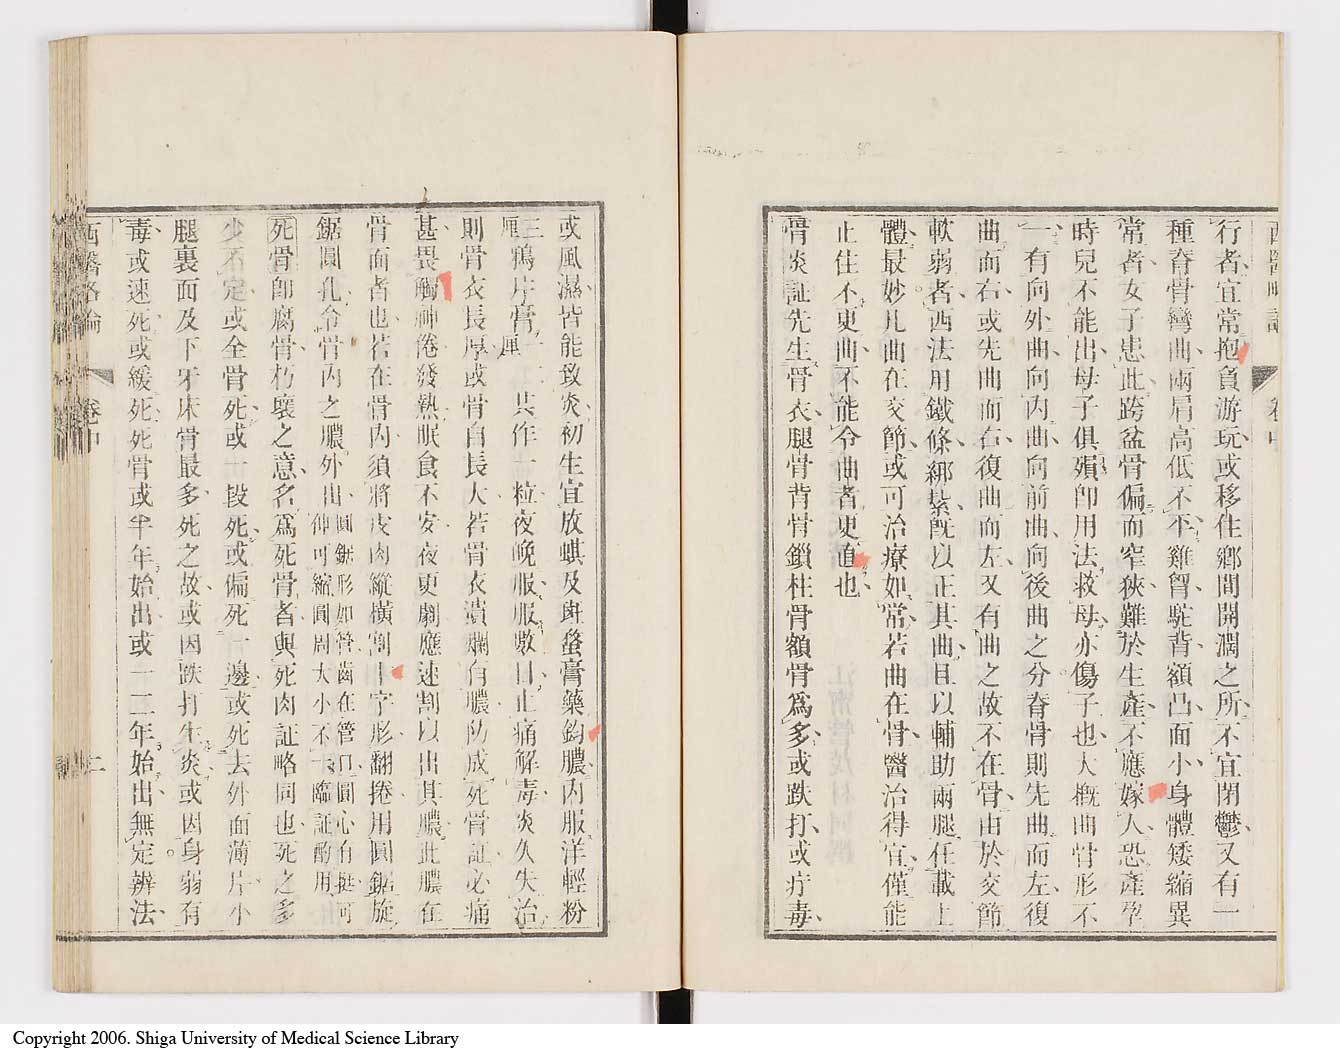 行者宜常抱負游玩或移住鄉間開濶之所不宜閉鬱又有一
種脊骨彎曲兩肩高低不平雞胷駝背額凸面小身體矮縮異
常者女子患此跨盆骨偏而窄狹難於生產不應嫁人恐產孕
時兒不能出母子俱殞卽用法救母亦傷子也大槪曲骨形不
一有向外曲向内曲向前曲向後曲之分脊骨則先曲而左復
曲而右或先曲而右復曲而左又有曲之故不在骨由於交節
軟弱者西法用鐵條綁紮旣以正其曲且以輔助兩腿任載上
體最妙凡曲在交節或可治療如常若曲在骨醫治得宜僅能
止住不更曲不能令曲者更直也
骨炎証先生骨衣腿骨背骨鎖柱骨額骨爲多或跌打或疔毒
或風濕皆能致炎初生宜放蜞及斑蝥膏藥鈞膿内服洋輕粉
三厘鴉片膏一厘共作一粒夜晚服服數日止痛解毒炎久失治
則骨衣長厚或骨自長大若骨衣潰爛有膿防成死骨証必痛
甚畏觸神倦發熱眠食不安夜更劇應速割以出其膿此膿在
骨面者也若在骨内須將皮肉縱橫割十字形翻捲用圓鋸旋
鋸圓孔令骨内之膿外出圓鋸形如管齒在管口圓心有挺可伸可縮圓周大小不一臨証酌用
死骨卽腐骨朽壞之意名爲死骨者與死肉証略同也死之多
少不定或全骨死或一段死或偏死一邊或死去外面薄片小
腿裏面及下牙床骨最多死之故或因跌打生炎或因身弱有
毒或速死或緩死死骨或半年始出或一二年始出無定辨法
西醫略論
卷中
二
Copyright 2006. Shiga University of Medical Science Library